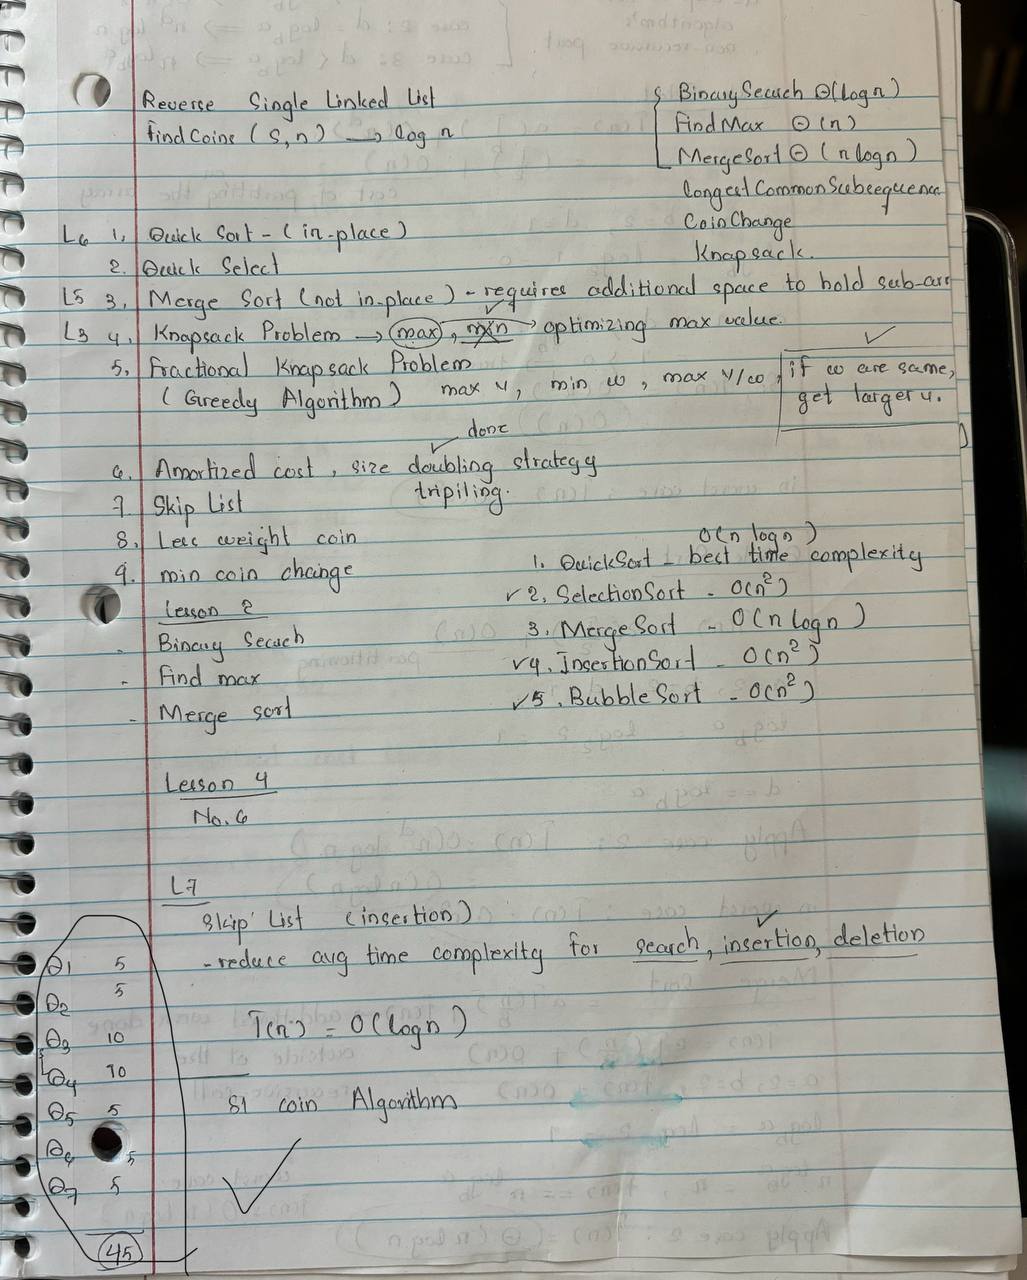 Reverse Single Linked List
findCoins (S,n) → log n
BinarySearch Θ(log n)
FindMax Θ(n)
MergeSort Θ(n log n)
LongestCommonSubsequence
CoinChange
Knapsack.
L6 1. Quick Sort - (in-place)
2. Quick Select
L5 3. Merge Sort (not in-place) - requires additional space to hold sub-arr
L3 4. Knapsack Problem → max, min → optimizing max value.
5. Fractional Knapsack Problem
(Greedy Algorithm) max v, min w, max v/w, if w are same,
get larger v.
done
6. Amortized cost, size doubling strategy
tripiling.
7. Skip List
8. Less weight coin
9. min coin change
O(n log n)
1. QuickSort - best time complexity
✓ 2. SelectionSort - O(n²)
3. MergeSort - O(n log n)
✓4. InsertionSort - O(n²)
✓5. BubbleSort - O(n²)
Lesson 2
- Binary Seach
- find max
- Merge sort
Lesson 4
No. 6
L7
Skip List (insertion)
- reduce avg time complexity for search, insertion, deletion
T(n) = O(log n)
81 coin Algorithm
Q1 5
Q2 5
Q3 10
Q4 10
Q5 5
Q6 5
Q7 5
45